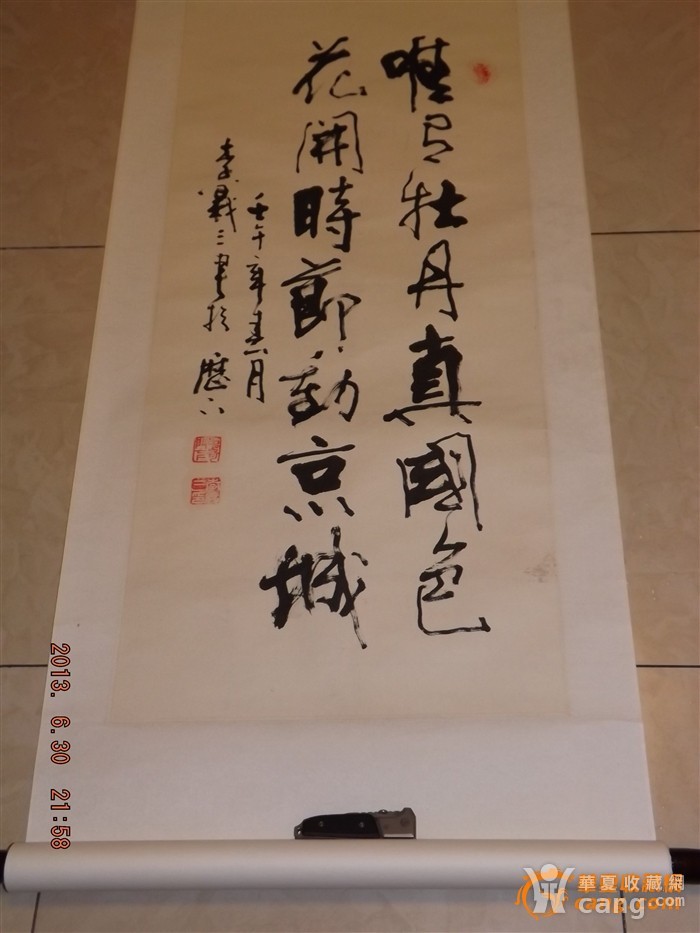 唯有牡丹真國色
花開時節動京城
壬午年春月
李義三書於歷下
2013. 6.30 21:58
華夏收藏網
cang.com